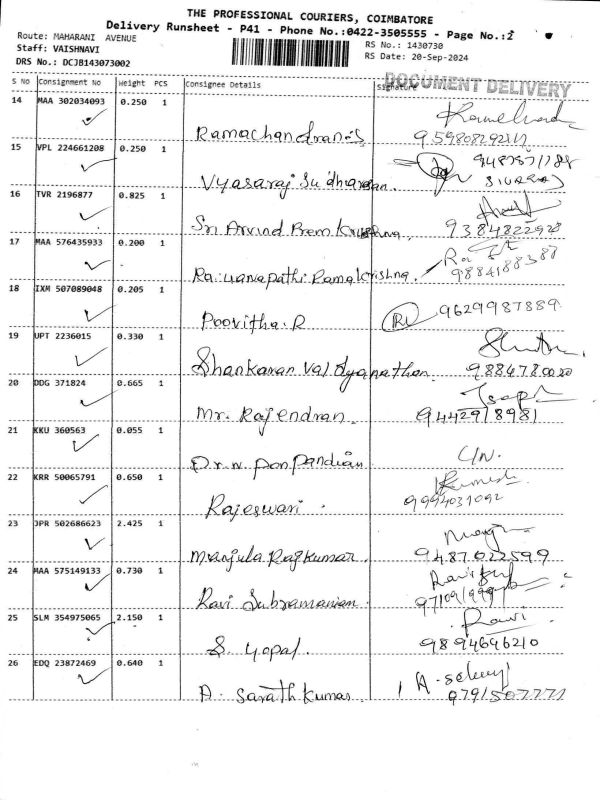 THE PROFESSIONAL COURIERS, COIMBATORE
Delivery Runsheet - P41 - Phone No.:0422-3505555 - Page No.:2
Route: MAHARANI AVENUE
Staff: VAISHNAVI
RS No.: 1430730
DRS No.: DCJB143073002
RS Date: 20-Sep-2024
DOCUMENT DELIVERY
S No Consignment No Weight PCS Consignee Details Signature
14 MAA 302034093 0.250 1
Ramachandran
15 VPL 224661208 0.250 1
Vyasaraj Sudharasan.
16 TVR 2196877 0.825 1
Sri Arvind Prem Krishna, 9384822928
17 MAA 576435933 0.200 1
Ramakrishna 9884188388
18 IXM 507089048 0.205 1
Poovitha.R 9629987889
19 UPT 2236015 0.330 1
Shankaran Vaidyanathan.
20 DDG 371824 0.665 1
Mr. Rajendran. 9442918981
21 KKU 360563 0.055 1
Dr.N. Ponpandian
22 KRR 50065791 0.650 1
Rajeswari. 9994031092
23 JPR 502686623 2.425 1
Manjula Rajkumar. 9487022599
24 MAA 575149133 0.730 1
Ravi Subramanian.
25 SLM 354975065 2.150 1
Ravi
S. Gopal. 9894696210
26 EDQ 23872469 0.640 1
A. Sarath Kumar.